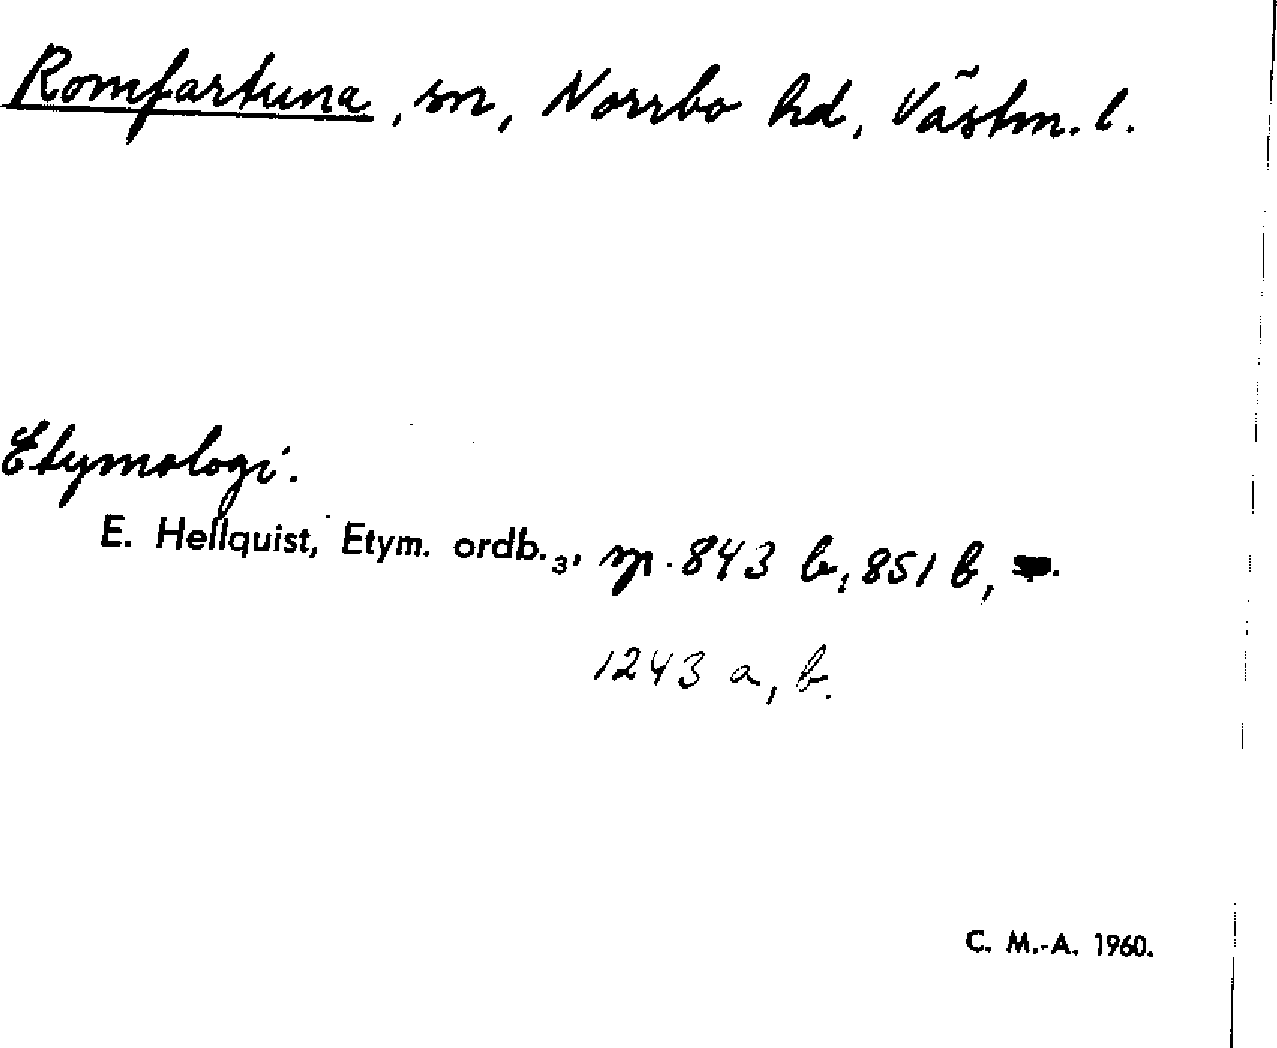 Romfartuna, sn, Norrbo hd, Västm. l.
Etymologi.
E. Hellquist, Etym. ordb.₃, sp. 843 b, 851 b,
1243 a, b.
C. M.-A. 1960.